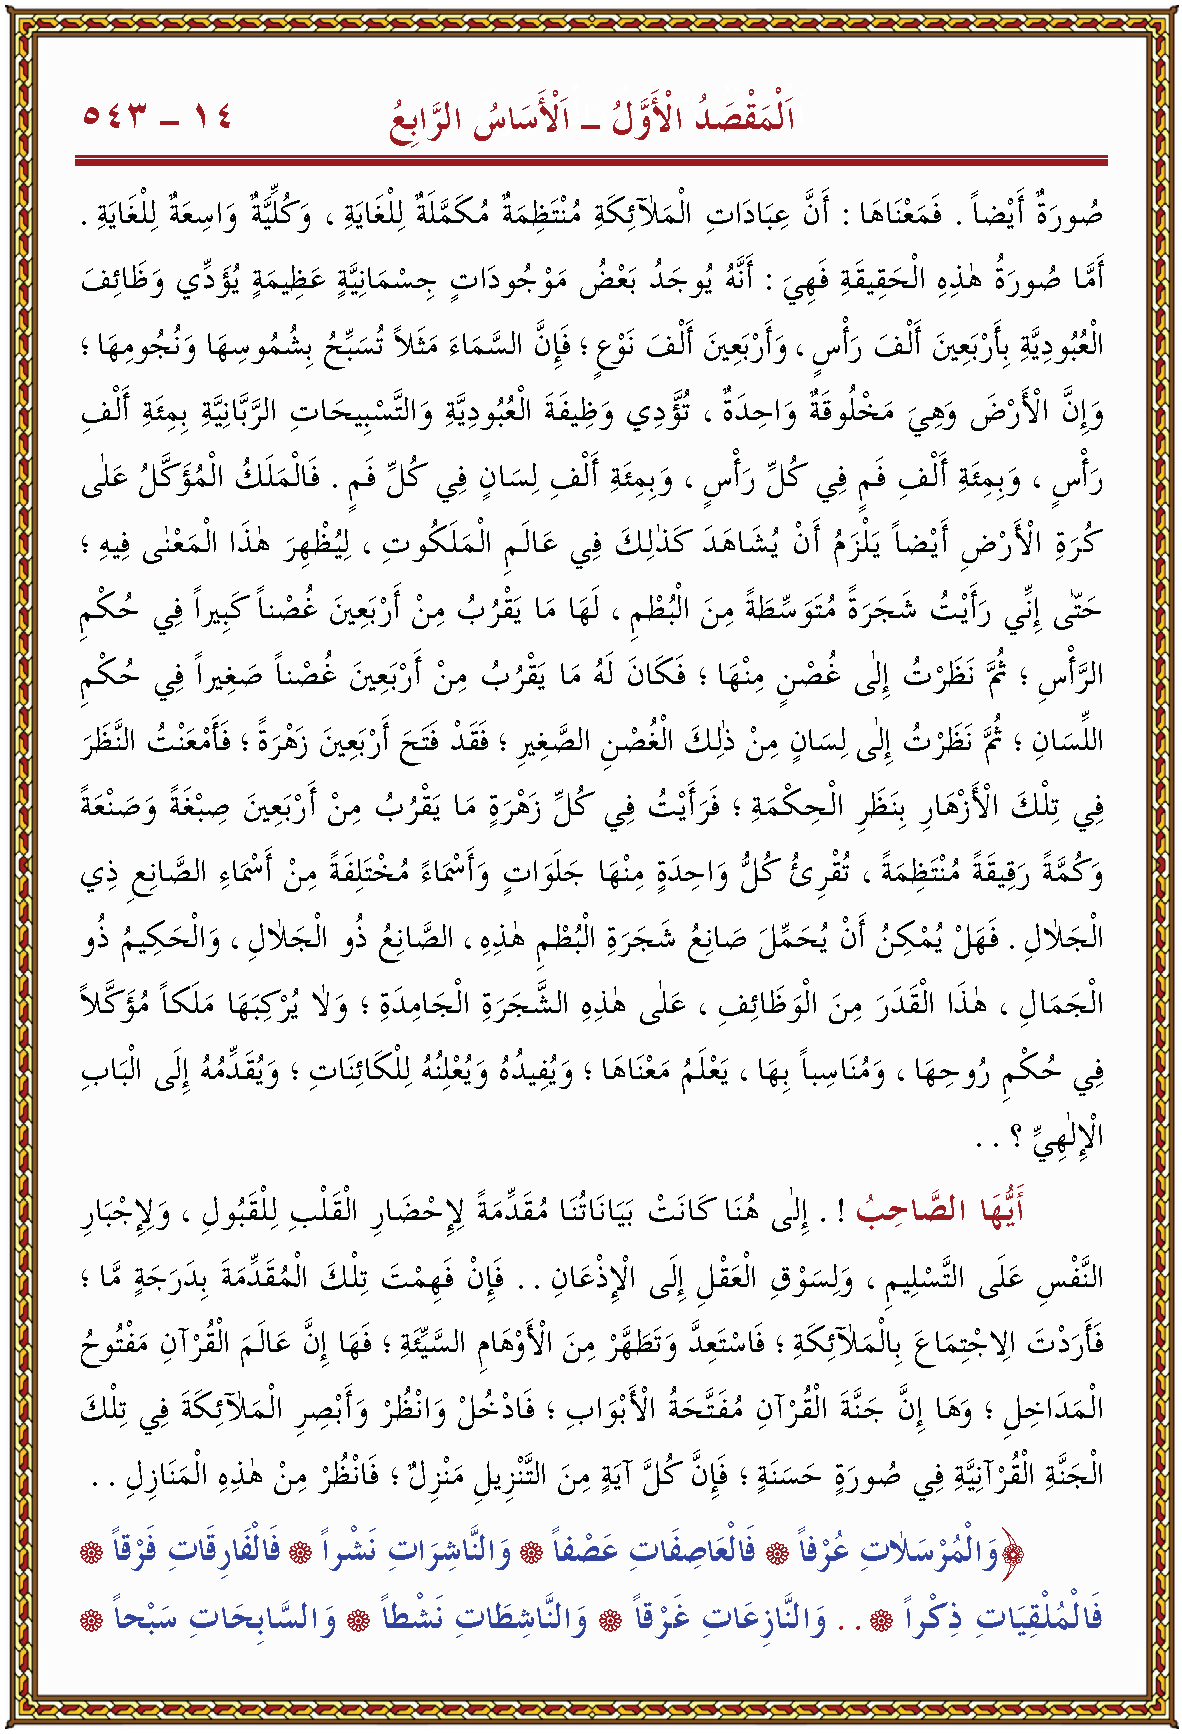 اَلْمَقْصَدُ الْأَوَّلُ – اَلْأَسَاسُ الرَّابِعُ ١٤ – ٥٤٣
صُورَةٌ أَيْضاً . فَمَعْنَاهَا : أَنَّ عِبَادَاتِ الْمَلَآئِكَةِ مُنْتَظِمَةٌ مُكَمَّلَةٌ لِلْغَايَةِ ، وَكُلِّيَّةٌ وَاسِعَةٌ لِلْغَايَةِ .
أَمَّا صُورَةُ هٰذِهِ الْحَقِيقَةِ فَهِيَ : أَنَّهُ يُوجَدُ بَعْضُ مَوْجُودَاتٍ جِسْمَانِيَّةٍ عَظِيمَةٍ يُؤَدِّي وَظَائِفَ
الْعُبُودِيَّةِ بِأَرْبَعِينَ أَلْفَ رَأْسٍ ، وَأَرْبَعِينَ أَلْفَ نَوْعٍ ؛ فَإِنَّ السَّمَاءَ مَثَلاً تُسَبِّحُ بِشُمُوسِهَا وَنُجُومِهَا ؛
وَإِنَّ الْأَرْضَ وَهِيَ مَخْلُوقَةٌ وَاحِدَةٌ ، تُؤَدِي وَظِيفَةَ الْعُبُودِيَّةِ وَالتَّسْبِيحَاتِ الرَّبَّانِيَّةِ بِمِئَةِ أَلْفِ
رَأْسٍ ، وَبِمِئَةِ أَلْفِ فَمٍ فِي كُلِّ رَأْسٍ ، وَبِمِئَةِ أَلْفِ لِسَانٍ فِي كُلِّ فَمٍ . فَالْمَلَكُ الْمُؤَكَّلُ عَلٰى
كُرَةِ الْأَرْضِ أَيْضاً يَلْزَمُ أَنْ يُشَاهَدَ كَذٰلِكَ فِي عَالَمِ الْمَلَكُوتِ ، لِيُظْهِرَ هٰذَا الْمَعْنٰى فِيهِ ؛
حَتّٰى إِنِّي رَأَيْتُ شَجَرَةً مُتَوَسِّطَةً مِنَ الْبُطْمِ ، لَهَا مَا يَقْرُبُ مِنْ أَرْبَعِينَ غُصْناً كَبِيراً فِي حُكْمِ
الرَّأْسِ ؛ ثُمَّ نَظَرْتُ إِلٰى غُصْنٍ مِنْهَا ؛ فَكَانَ لَهُ مَا يَقْرُبُ مِنْ أَرْبَعِينَ غُصْناً صَغِيراً فِي حُكْمِ
اللِّسَانِ ؛ ثُمَّ نَظَرْتُ إِلٰى لِسَانٍ مِنْ ذٰلِكَ الْغُصْنِ الصَّغِيرِ ؛ فَقَدْ فَتَحَ أَرْبَعِينَ زَهْرَةً ؛ فَأَمْعَنْتُ النَّظَرَ
فِي تِلْكَ الْأَزْهَارِ بِنَظَرِ الْحِكْمَةِ ؛ فَرَأَيْتُ فِي كُلِّ زَهْرَةٍ مَا يَقْرُبُ مِنْ أَرْبَعِينَ صِبْغَةً وَصَنْعَةً
وَكُمَّةً رَقِيقَةً مُنْتَظِمَةً ، تُقْرِئُ كُلُّ وَاحِدَةٍ مِنْهَا جَلَوَاتٍ وَأَسْمَاءً مُخْتَلِفَةً مِنْ أَسْمَاءِ الصَّانِعِ ذِي
الْجَلَالِ . فَهَلْ يُمْكِنُ أَنْ يُحَمِّلَ صَانِعُ شَجَرَةِ الْبُطْمِ هٰذِهِ ، الصَّانِعُ ذُو الْجَلَالِ ، وَالْحَكِيمُ ذُو
الْجَمَالِ ، هٰذَا الْقَدَرَ مِنَ الْوَظَائِفِ ، عَلٰى هٰذِهِ الشَّجَرَةِ الْجَامِدَةِ ؛ وَلَا يُرْكِبَهَا مَلَكاً مُؤَكَّلاً
فِي حُكْمِ رُوحِهَا ، وَمُنَاسِباً بِهَا ، يَعْلَمُ مَعْنَاهَا ؛ وَيُفِيدُهُ وَيُعْلِنُهُ لِلْكَائِنَاتِ ؛ وَيُقَدِّمُهُ إِلَى الْبَابِ
الْإِلٰهِيِّ ؟ . .
أَيُّهَا الصَّاحِبُ ! . إِلٰى هُنَا كَانَتْ بَيَانَاتُنَا مُقَدِّمَةً لِإِحْضَارِ الْقَلْبِ لِلْقَبُولِ ، وَلِإِجْبَارِ
النَّفْسِ عَلَى التَّسْلِيمِ ، وَلِسَوْقِ الْعَقْلِ إِلَى الْإِذْعَانِ . . فَإِنْ فَهِمْتَ تِلْكَ الْمُقَدِّمَةَ بِدَرَجَةٍ مَّا ؛
فَأَرَدْتَ الِاجْتِمَاعَ بِالْمَلَآئِكَةِ ؛ فَاسْتَعِدَّ وَتَطَهَّرْ مِنَ الْأَوْهَامِ السَّيِّئَةِ ؛ فَهَا إِنَّ عَالَمَ الْقُرْآنِ مَفْتُوحُ
الْمَدَاخِلِ ؛ وَهَا إِنَّ جَنَّةَ الْقُرْآنِ مُفَتَّحَةُ الْأَبْوَابِ ؛ فَادْخُلْ وَانْظُرْ وَأَبْصِرِ الْمَلَآئِكَةَ فِي تِلْكَ
الْجَنَّةِ الْقُرْآنِيَّةِ فِي صُورَةٍ حَسَنَةٍ ؛ فَإِنَّ كُلَّ آيَةٍ مِنَ التَّنْزِيلِ مَنْزِلٌ ؛ فَانْظُرْ مِنْ هٰذِهِ الْمَنَازِلِ . .
﴿وَالْمُرْسَلَاتِ عُرْفاً ۞ فَالْعَاصِفَاتِ عَصْفاً ۞ وَالنَّاشِرَاتِ نَشْراً ۞ فَالْفَارِقَاتِ فَرْقاً ۞
فَالْمُلْقِيَاتِ ذِكْراً ۞ . . وَالنَّازِعَاتِ غَرْقاً ۞ وَالنَّاشِطَاتِ نَشْطاً ۞ وَالسَّابِحَاتِ سَبْحاً ۞